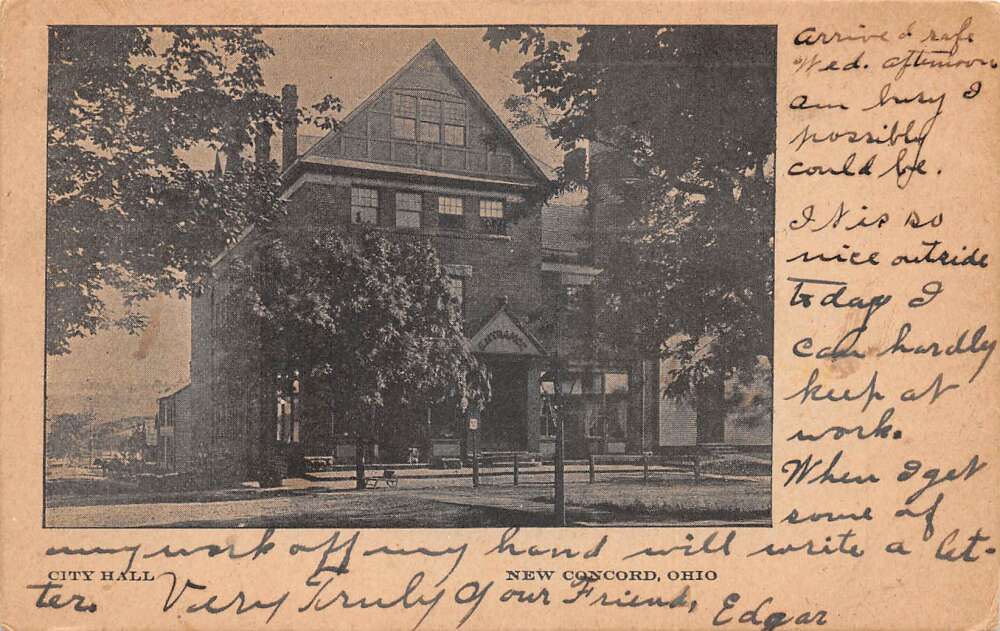 Arrived safe
Wed. afternoon
am busy I
possibly
could be.
It is so
nice outside
today I
can hardly
keep at
work.
When I get
some of
my work off my hand will write a let-
ter. Very Truly Your Friend, Edgar
ENTRANCE
CITY HALL
NEW CONCORD, OHIO